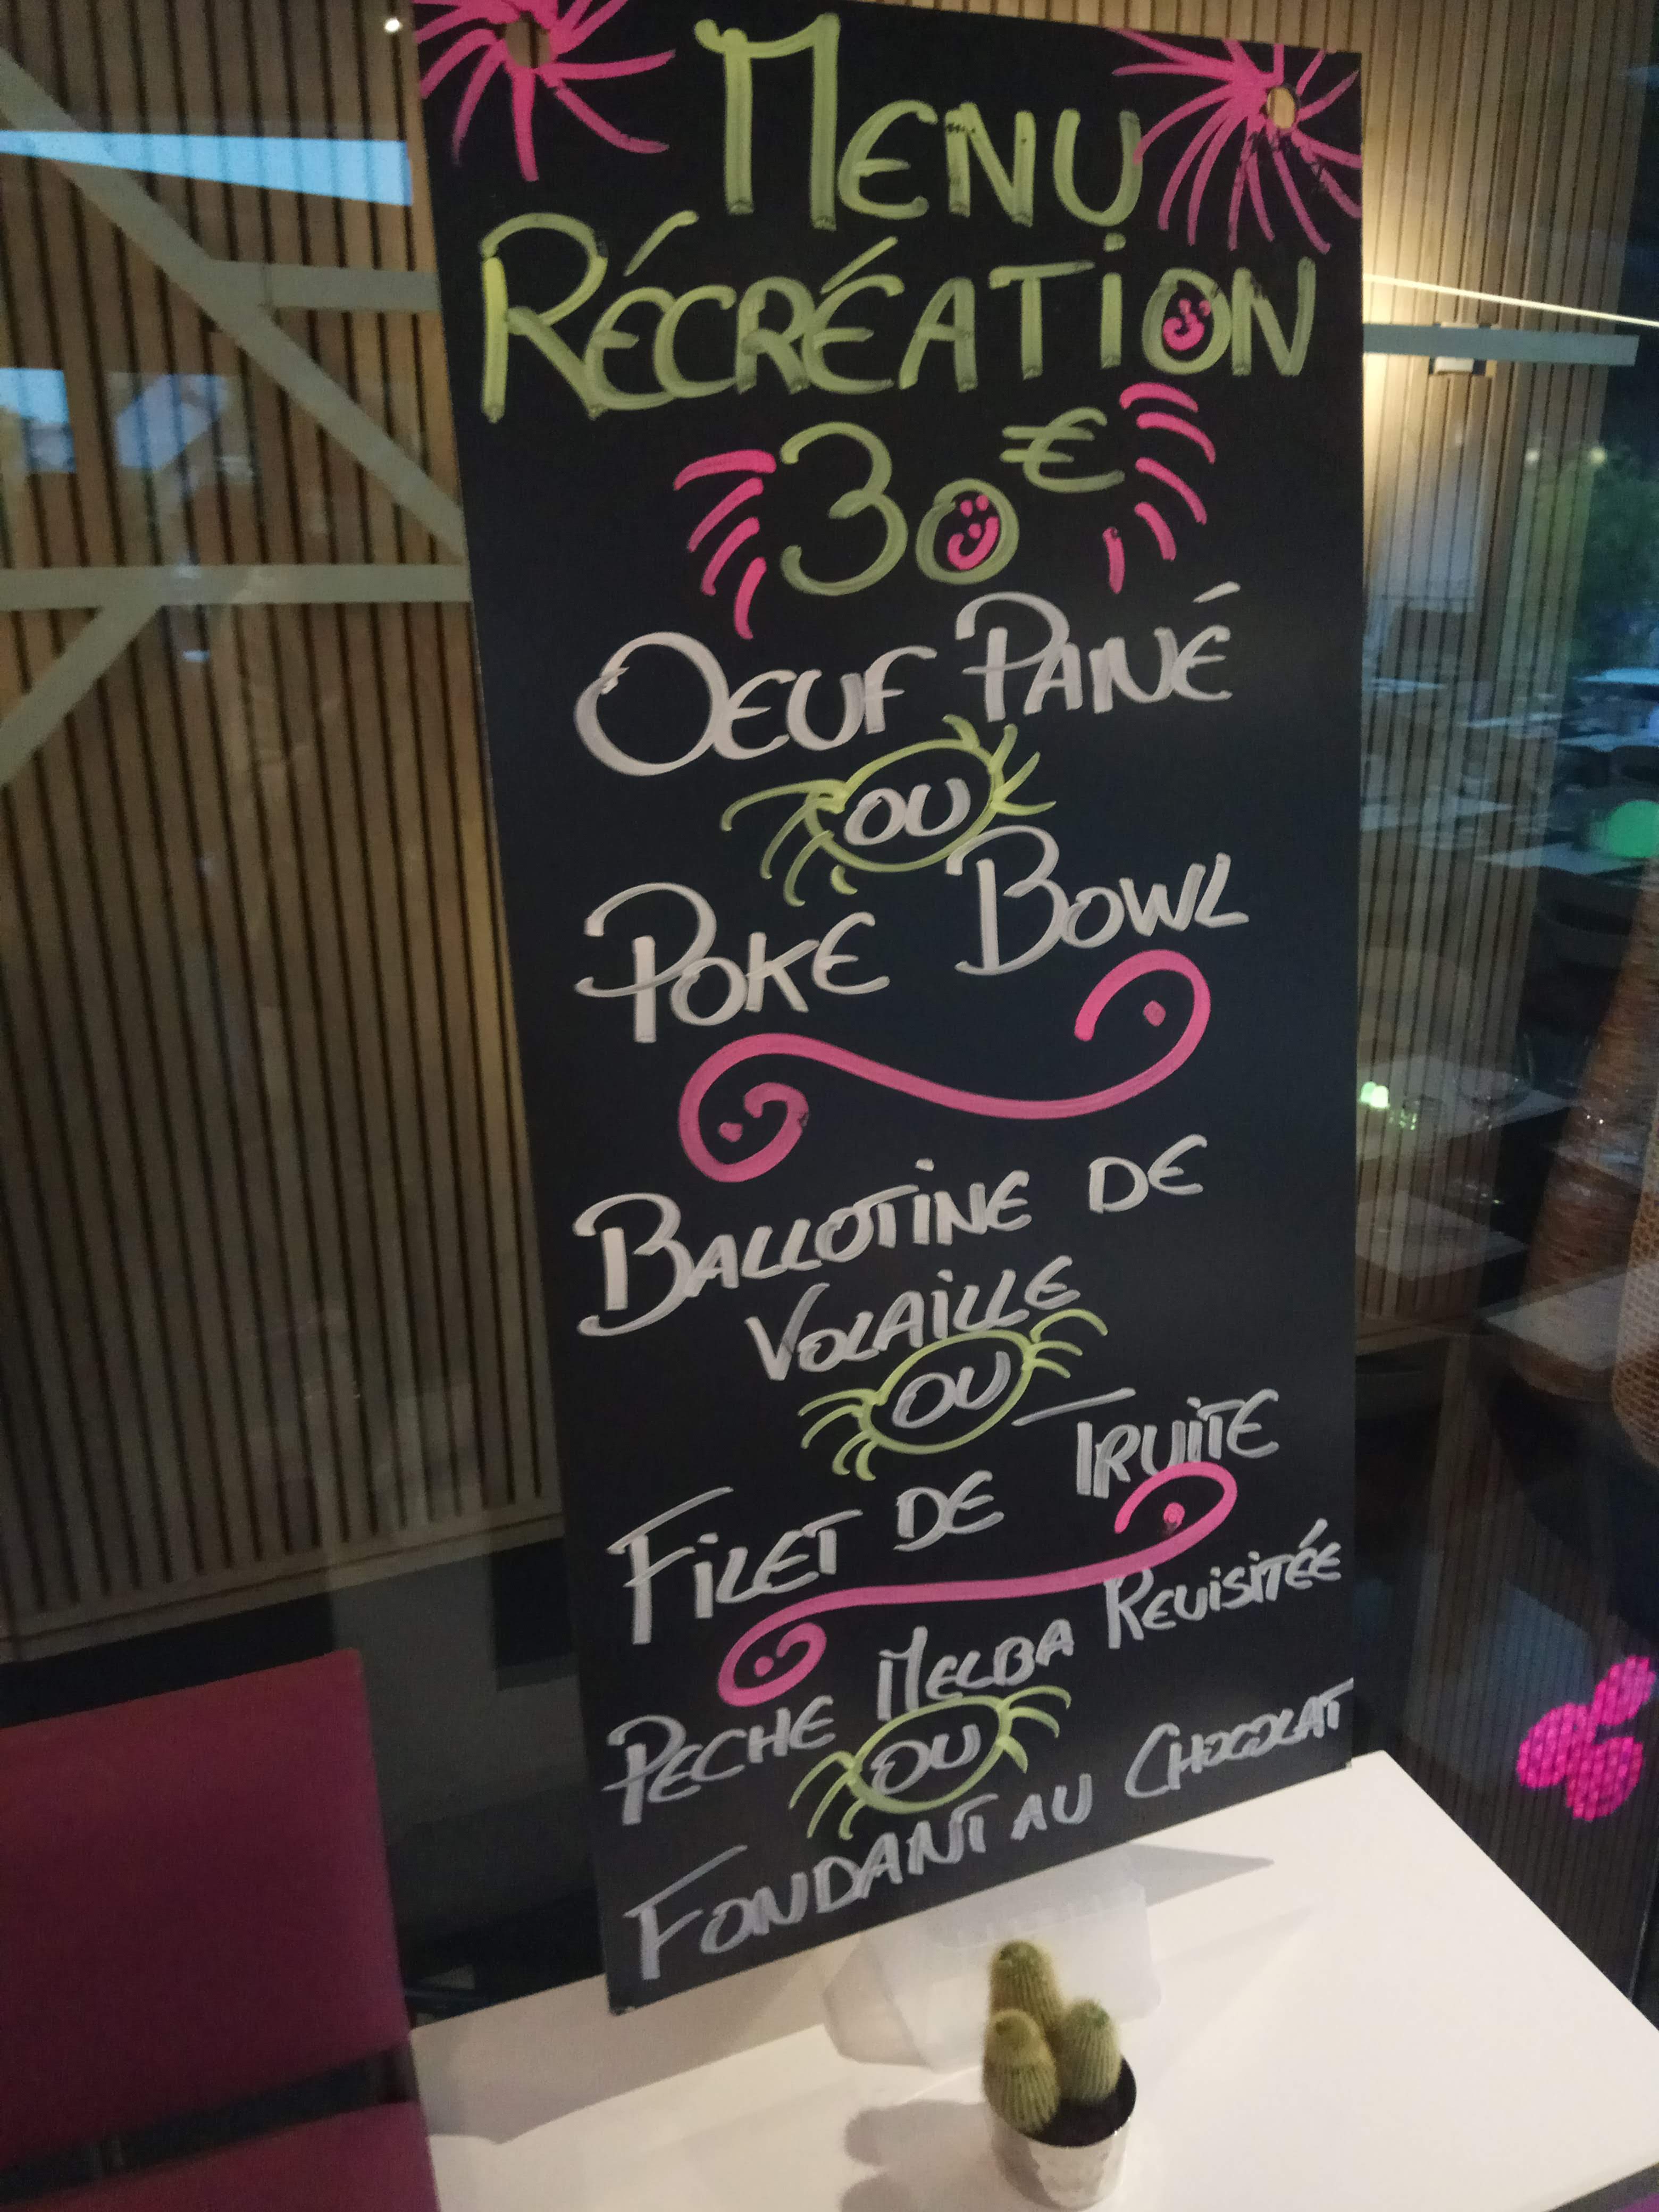 MENU
RÉCRÉATION
30€
OEUF PANÉ
OU
POKE BOWL
BALLOTINE DE
VOLAILLE
OU
FILET DE TRUITE
PECHE MELBA REVISITÉE
OU
FONDANT AU CHOCOLAT